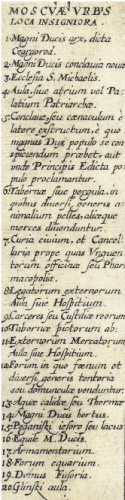 MOSCVÆ VRBIS
LOCA INSIGNIORA.
1. Magni Ducis arx, dicta
Czargorod.
2. Magni Ducis conclavia nova
3. Ecclesia S. Michaelis.
4. Aula, sive atrium vel Pa-
latium Patriarchæ.
5. Conclave, seu cœnaculum e
latere exstructum, e quo
magnus Dux populo se con-
spiciendum præbet, aut
unde Principis Edicta po-
pulo proclamantur.
6. Tabernæ sive pergula, in
quibus diversi generis a-
nimalium pelles, aliæque
merces divenduntur.
7. Curia civium, et Cancel-
laria prope quas Vnguen-
torum officinæ seu Phar-
macopolii.
8. Legatorum externorum
Aula sive Hospitium.
9. Carceres seu Custodiæ reorum
10. Tabernæ pictorum ab:
11. Externorum Mercatorum
Aula sive Hospitium.
12. Forum in quo fœnum et
diversi generis tentoria
seu venduntur.
13. Aquæ calidæ seu Thermæ
14. Magni Ducis hortus.
15. Poganski iesoro seu lacus
16. Equile M. Ducis.
17. Armamentarium.
18. Forum equarium.
19. Domus Fusoria.
20. Glinski aula.